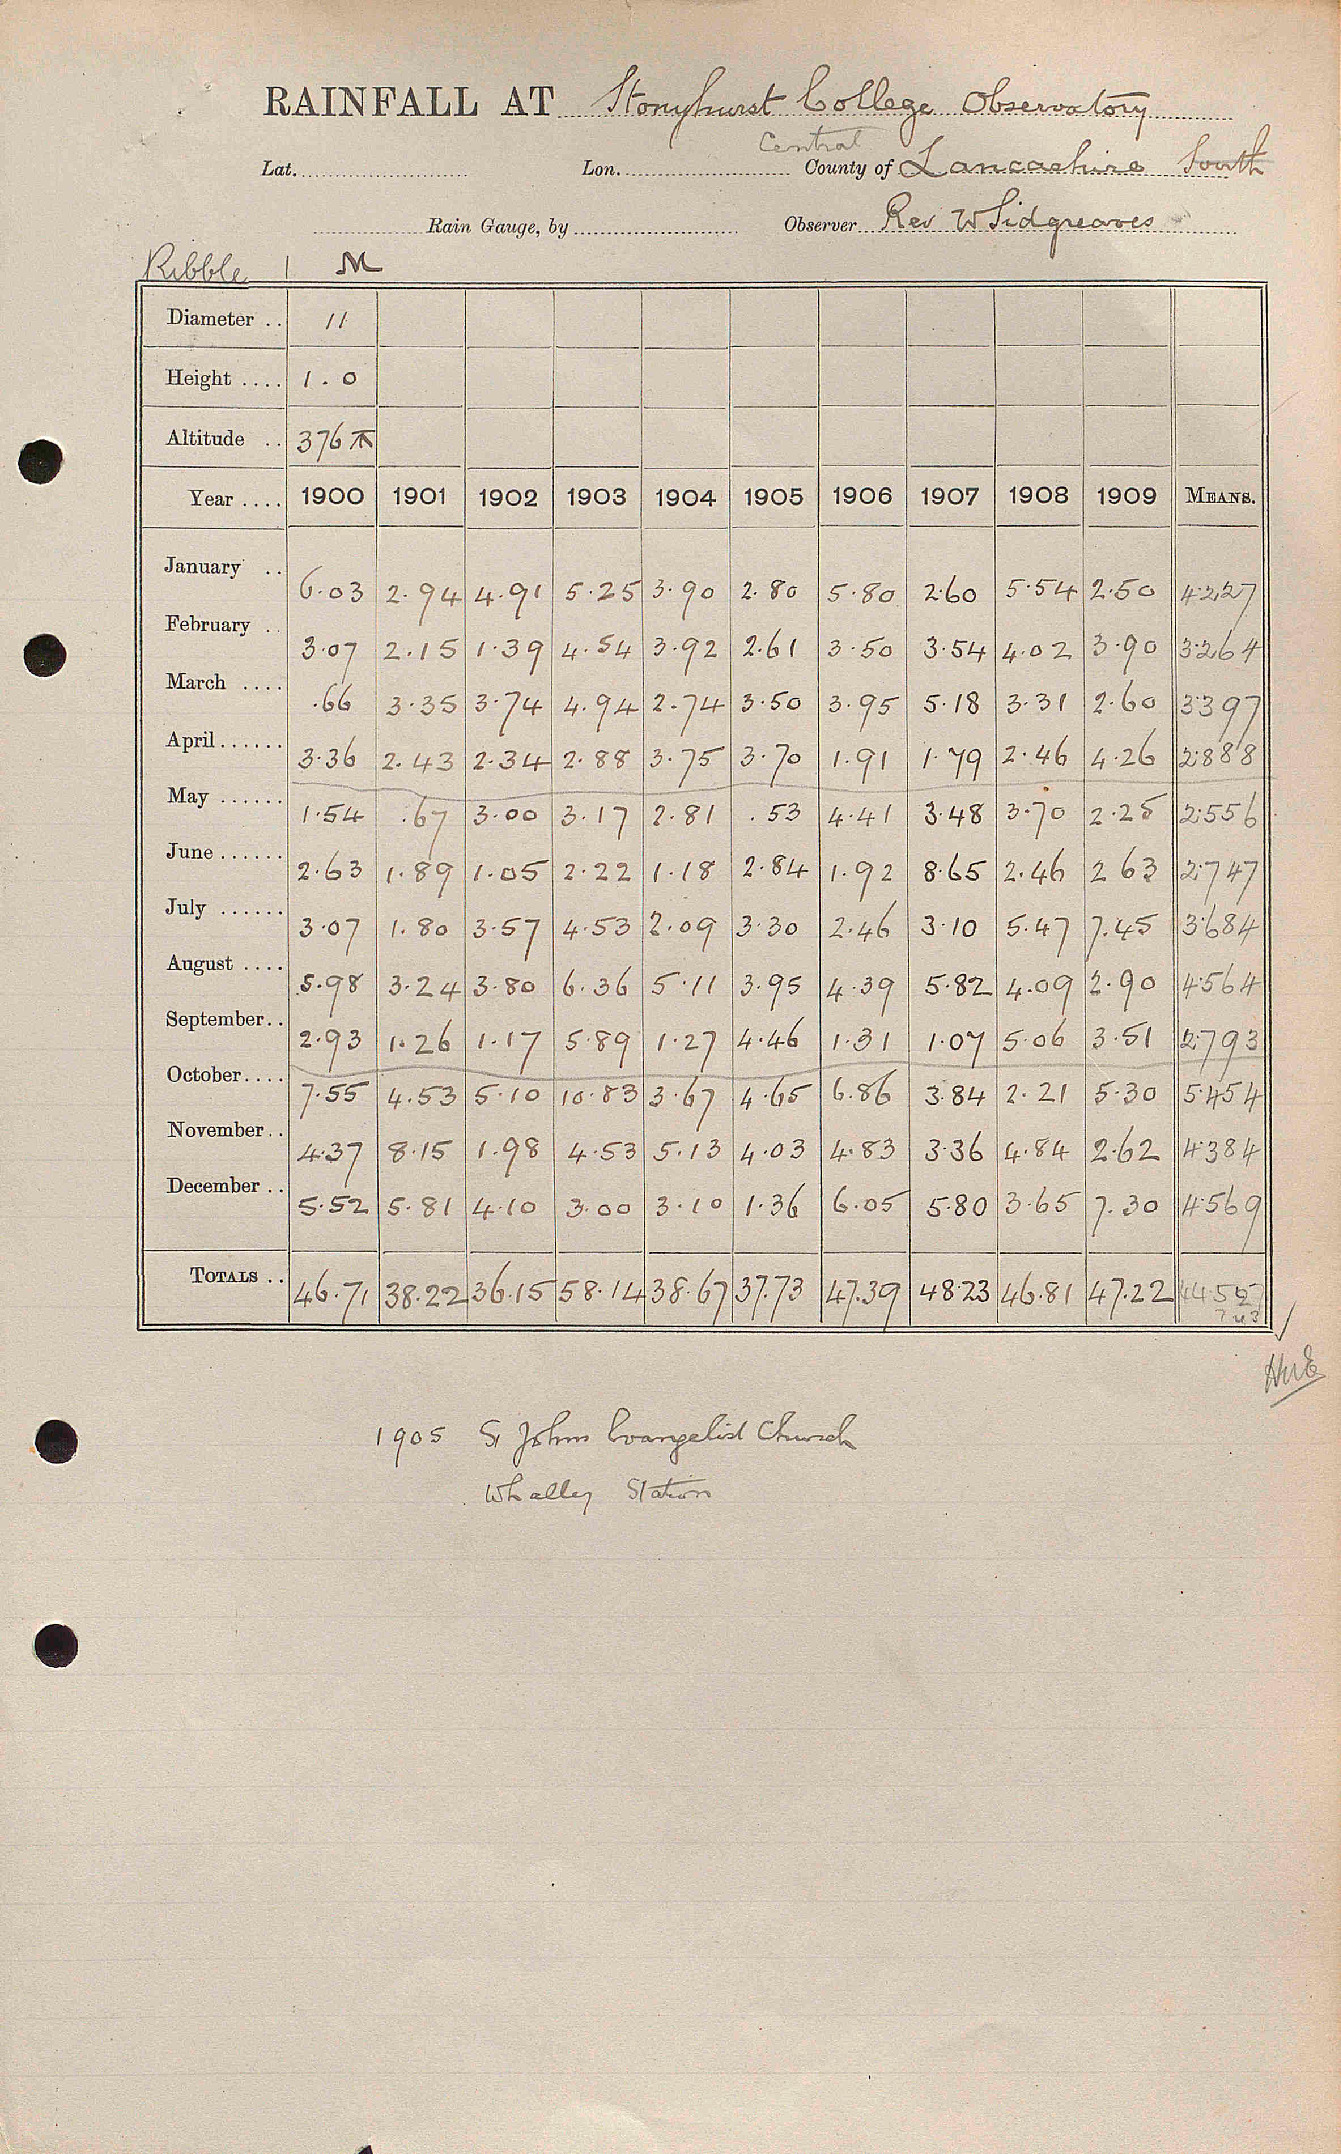 RAINFALL AT Stonyhurst College Observatory
Central
Lat. Lon. County of Lancashire South
Rain Gauge, by Observer Rev W Sidgreaves
Ribble | M
Diameter .. 11
Height .... 1.0
Altitude .. 376
Year .... 1900 1901 1902 1903 1904 1905 1906 1907 1908 1909 MEANS.
January .. 6.03 2.94 4.91 5.25 3.90 2.80 5.80 2.60 5.54 2.50 4.227
February .. 3.07 2.15 1.39 4.54 3.92 2.61 3.50 3.54 4.02 3.90 3.264
March .... .66 3.35 3.74 4.94 2.74 3.50 3.95 5.18 3.31 2.60 3.397
April ...... 3.36 2.43 2.34 2.88 3.75 3.70 1.91 1.79 2.46 4.26 2.888
May ...... 1.54 .67 3.00 3.17 2.81 .53 4.41 3.48 3.70 2.25 2.556
June ...... 2.63 1.89 1.05 2.22 1.18 2.84 1.92 8.65 2.46 2 63 2.747
July ...... 3.07 1.80 3.57 4.53 2.09 3.30 2.46 3.10 5.47 7.45 3.684
August .... 5.98 3.24 3.80 6.36 5.11 3.95 4.39 5.82 4.09 2.90 4.564
September .. 2.93 1.26 1.17 5.89 1.27 4.46 1.31 1.07 5.06 3.51 2.793
October .... 7.55 4.53 5.10 10.83 3.67 4.65 6.86 3.84 2.21 5.30 5.454
November .. 4.37 8.15 1.98 4.53 5.13 4.03 4.83 3.36 4.84 2.62 4.384
December .. 5.52 5.81 4.10 3.00 3.10 1.36 6.05 5.80 3.65 7.30 4.569
TOTALS .. 46.71 38.22 36.15 58.14 38.67 37.73 47.39 48.23 46.81 47.22
1905 St Johns Evangelist Church
Whalley Station